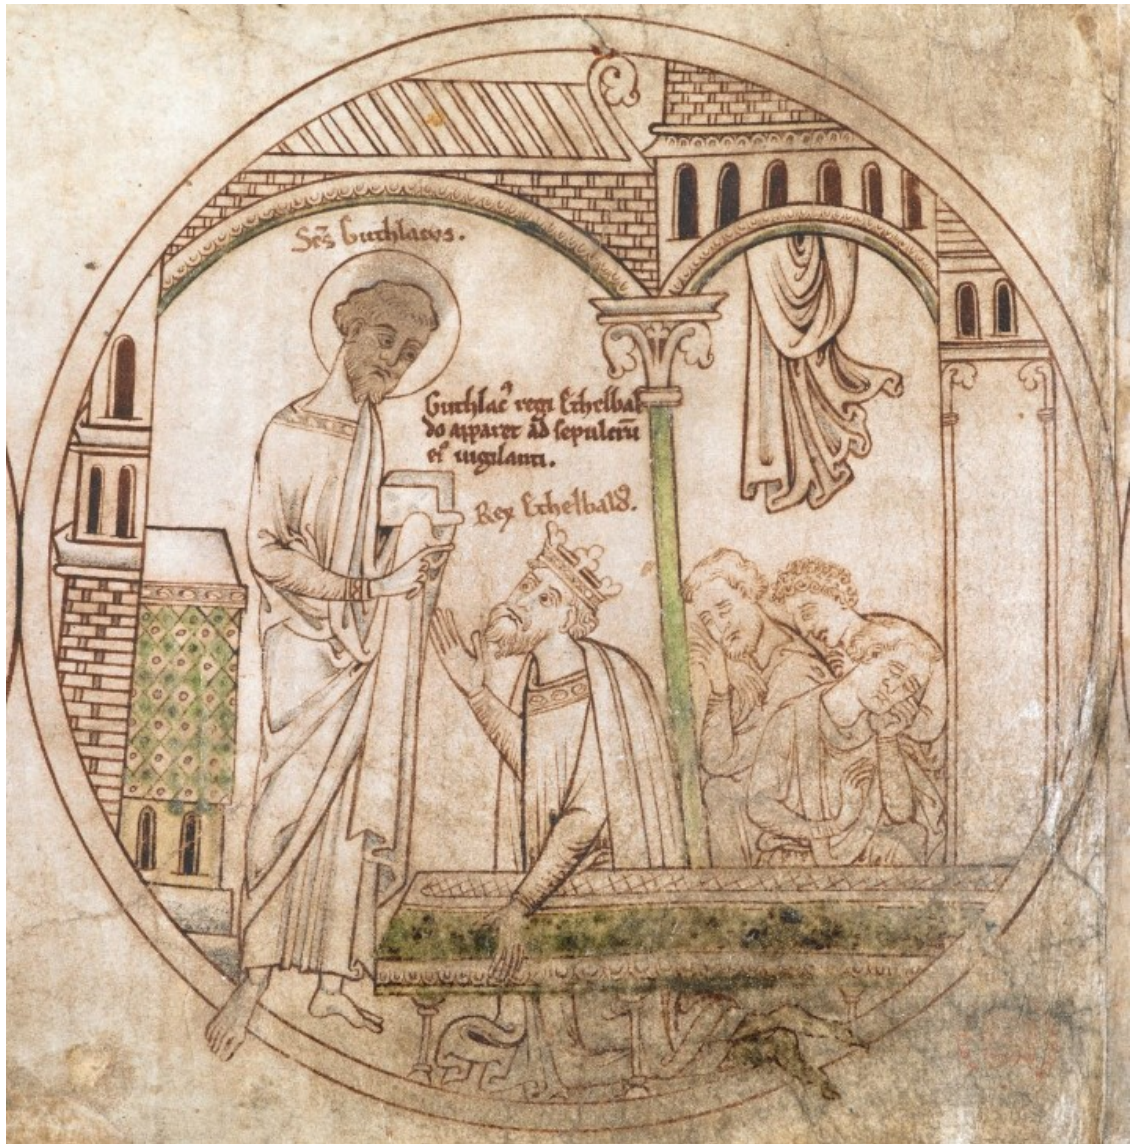 Scs Guthlacus.
Guthlac' regi Ethelbal
do apparet ad sepulcrū
ei' uigilanti.
Rex Ethelbald'.